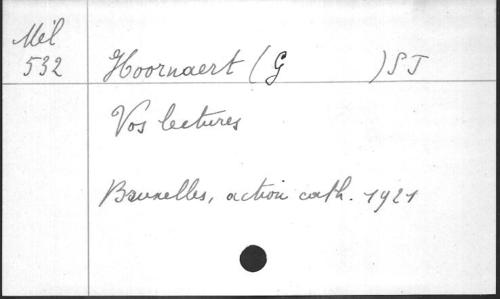 Mél
532
Hoornaert (G )SJ
Vos lectures
Bruxelles, action cath. 1921